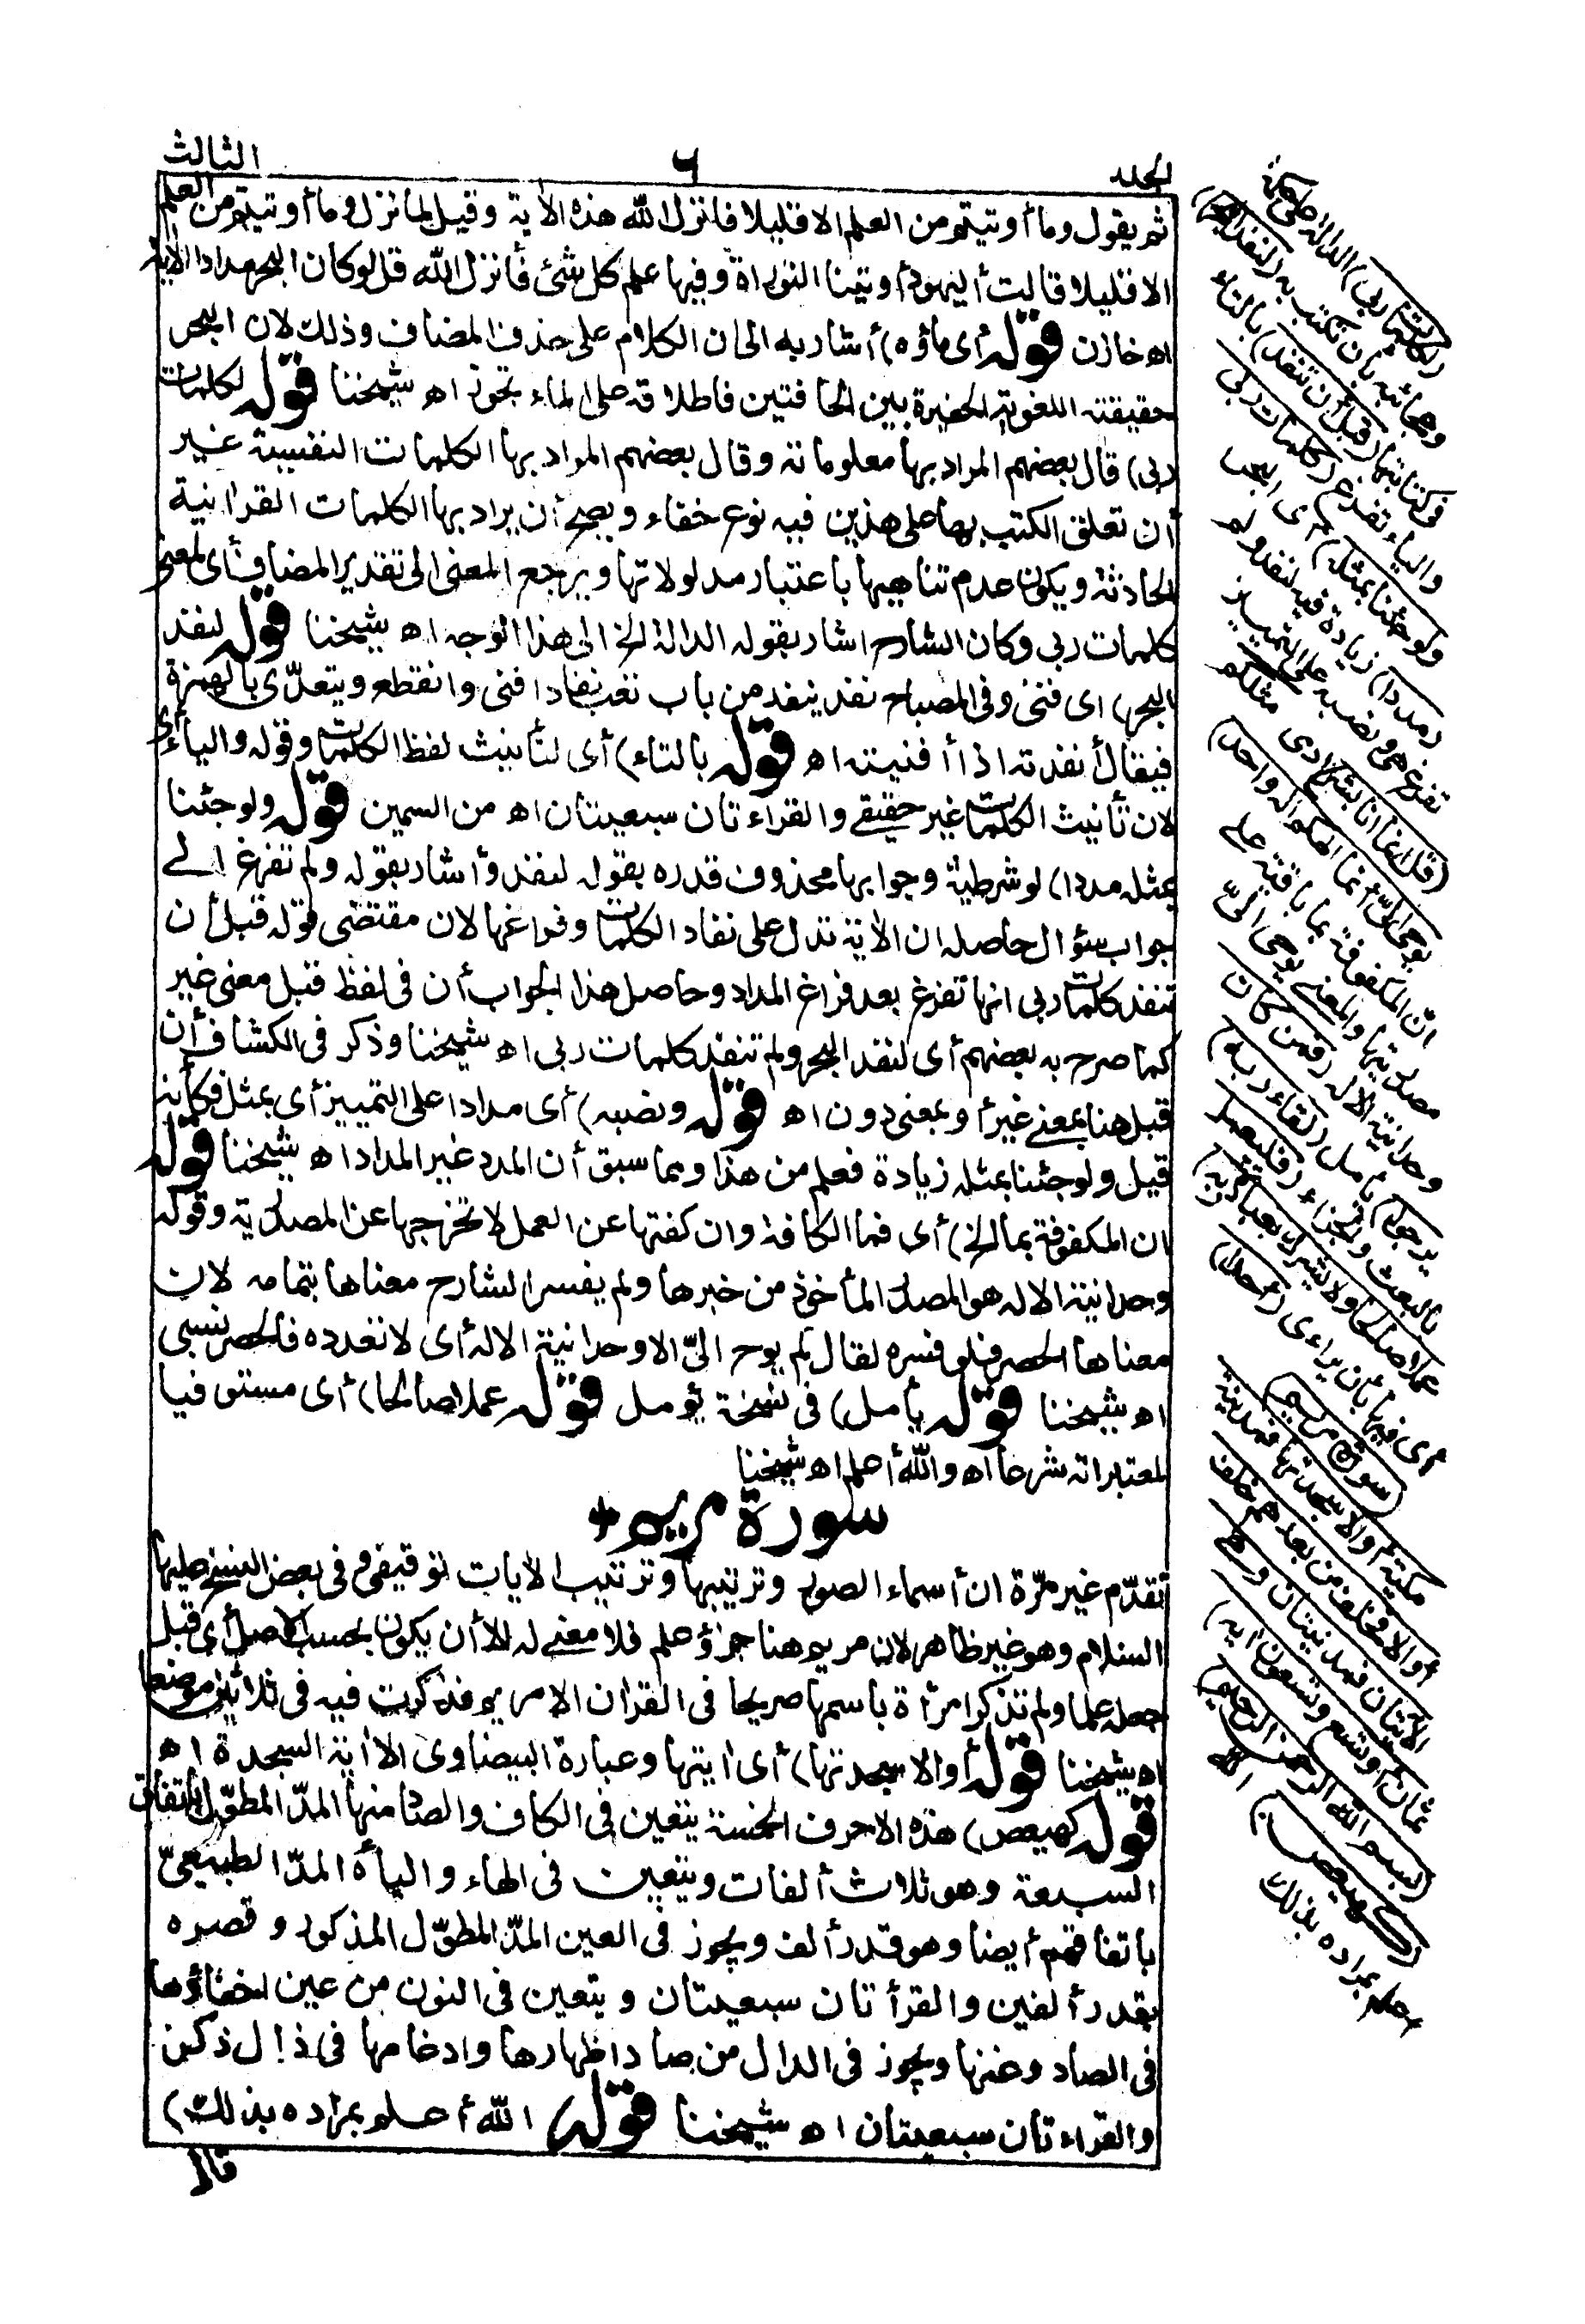 الجلد
٦
الثالث
ثم يقول وما أوتيتم من العلم الا قليلا فانزل الله هذه الأية وقيل لما نزل وما أوتيتم من العلم
الا قليلا قالت أليهود أوتينا التوراة وفيها علم كل شئ فأنزل الله قل لوكان البحر مدادا الأية
اه خازن قوله أى ماؤه) أشار به الى ان الكلام على حذف المضاف وذلك لان البحر
حقيقته اللغوية الحفيرة بين الحافتين فاطلاقه على الماء تجوز اه شيخنا قوله لكلمات
ربى) قال بعضهم المراد بها معلوماته وقال بعضهم المراد بها الكلمات النفسية غير
أن تعلق الكتب بها على هذين فيه نوع خفاء ويصح أن يراد بها الكلمات القرانية
الحادثة ويكون عدم تناهيها باعتبار مدلولاتها ويرجع المعنى الى تقدير المضاف أى لمعنى
كلمات ربى وكان الشارح اشار بقوله الدالة الخ الى هذا الوجه اه شيخنا قوله لنفد
البحر) اى فنى وفى المصباح نفد ينفد من باب تعب نفادا فنى وانقطع ويتعدّى بالهمزة
فيقال أنفدته اذا أفنيته اه قوله بالتاء) أى لتأنيث لفظ الكلمات وقوله والياء أى
لان تأنيث الكلمات غير حقيقے والقراءتان سبعيتان اه من السمين قوله ولوجئنا
بمثله مددا) لو شرطية وجوابها محذوف قدره بقوله لنفد وأشار بقوله ولم تفرغ الے
جواب سؤال حاصله ان الأية تدل على نفاد الكلمات وفراغها لان مقتضى قوله قبل أن
تنفد كلمات ربى انها تفرغ بعد فراغ المداد وحاصل هذا الجواب أن فى لفظ قبل معنى غير
كما صرح به بعضهم أى لنفد البحر ولم تنفد كلمات ربى اه شيخنا وذكر فى الكشاف أن
قبل هنا بمعنے غير أو بمعنى دون اه قوله ونصبه) أى مدادا على التمييز أى بمثل فكأنه
قيل ولوجئنا بمثله زيادة فعلم من هذا ومما سبق أن المدد غير المداد اه شيخنا قوله
ان المكفوفة بما الخ) أى فما الكافة وان كفتها عن العمل لا تخرجها عن المصدرية وقوله
وحدانية الاله هو المصدر المأخوذ من خبرها ولم يفسر الشارح معناها بتمامه لان
معناها الحصر فلو فسره لقال لم يوح الىّ الا وحدانية الاله أى لا تعدده فالحصر نسبى
اه شيخنا قوله يأمل) فى نسخة يؤمل قوله عملا صالحا) أى مستوفيا
لمعتبراته شرعا اه والله أعلم اه شيخنا
سورة مريم
تقدّم غير مرّة ان أسماء الصور وترتيبها وترتيب الأيات توقيفى وفى بعض النسخ عليها
السلام وهو غير ظاهر لان مريم هنا جزؤ علم فلا معنے له الا أن يكون بحسب الاصل أى قبل
جعله علما ولم تذكر امرأة باسمها صريحا فى القران الا مريم فذكرت فيه فى ثلاثين موضعا
اه شيخنا قوله أو الا سجدتها) أى ايتها وعبارة البيضاوى الا أية السجدة اه
قوله كهيعص) هذه الاحرف الخمسة يتعين فى الكاف والصاد منها المدّ المطوّل باتفاق
السبعة وهو ثلاث ألفات ويتعين فى الهاء والياء المدّ الطبيعىّ
باتفاقهم أيضا وهو قدر ألف ويجوز فى العين المدّ المطوّل المذكور وقصره
بقدر ألفين والقرأتان سبعيتان ويتعين فى النون من عين اخفاؤها
فى الصاد وغنها ويجوز فى الدال من صاد اظهارها وادغامها فى ذال ذكر
والقراءتان سبعيتان اه شيخنا قوله) الله أعلم بمراده بذلك)
قال
(لكلمات ربى) الدالة على حكمه
وعجائبه بأن تكتب به (لنفد البحر)
فى كتابتها (قبل أن تنفد) بالتاء
والياء تفرغ (كلمات ربى
ولو جئنا بمثله) أى البحر
(مددا) زيادة فيه لنفد ولم
تفرغ هى ونصبه على التمييز
(قل انما أنا بشر) ادمى مثلكم
يوحى الىّ أنما الهكم اله واحد)
انّ المكفوفة بما باقية على
مصدريتها والمعنے يوحى الىّ
وحدانية الاله (فمن كان
يرجوا) يأمل (لقاء ربه)
بالبعث والجزاء (فليعمل
عملا صالحا ولا يشرك بعبادة ربه)
أى فيها بأن يرائى (أحدا)
(سورة مريم)
مكية أو الا سجدتها فمدنية
أو الا فخلف من بعدهم خلف
الأيتان فمدنيتان وهى
ثمان أو تسع وتسعون اية)
(بسم الله الرحمن الرحيم)
(كهيعص) الله
أعلم بمراده بذلك